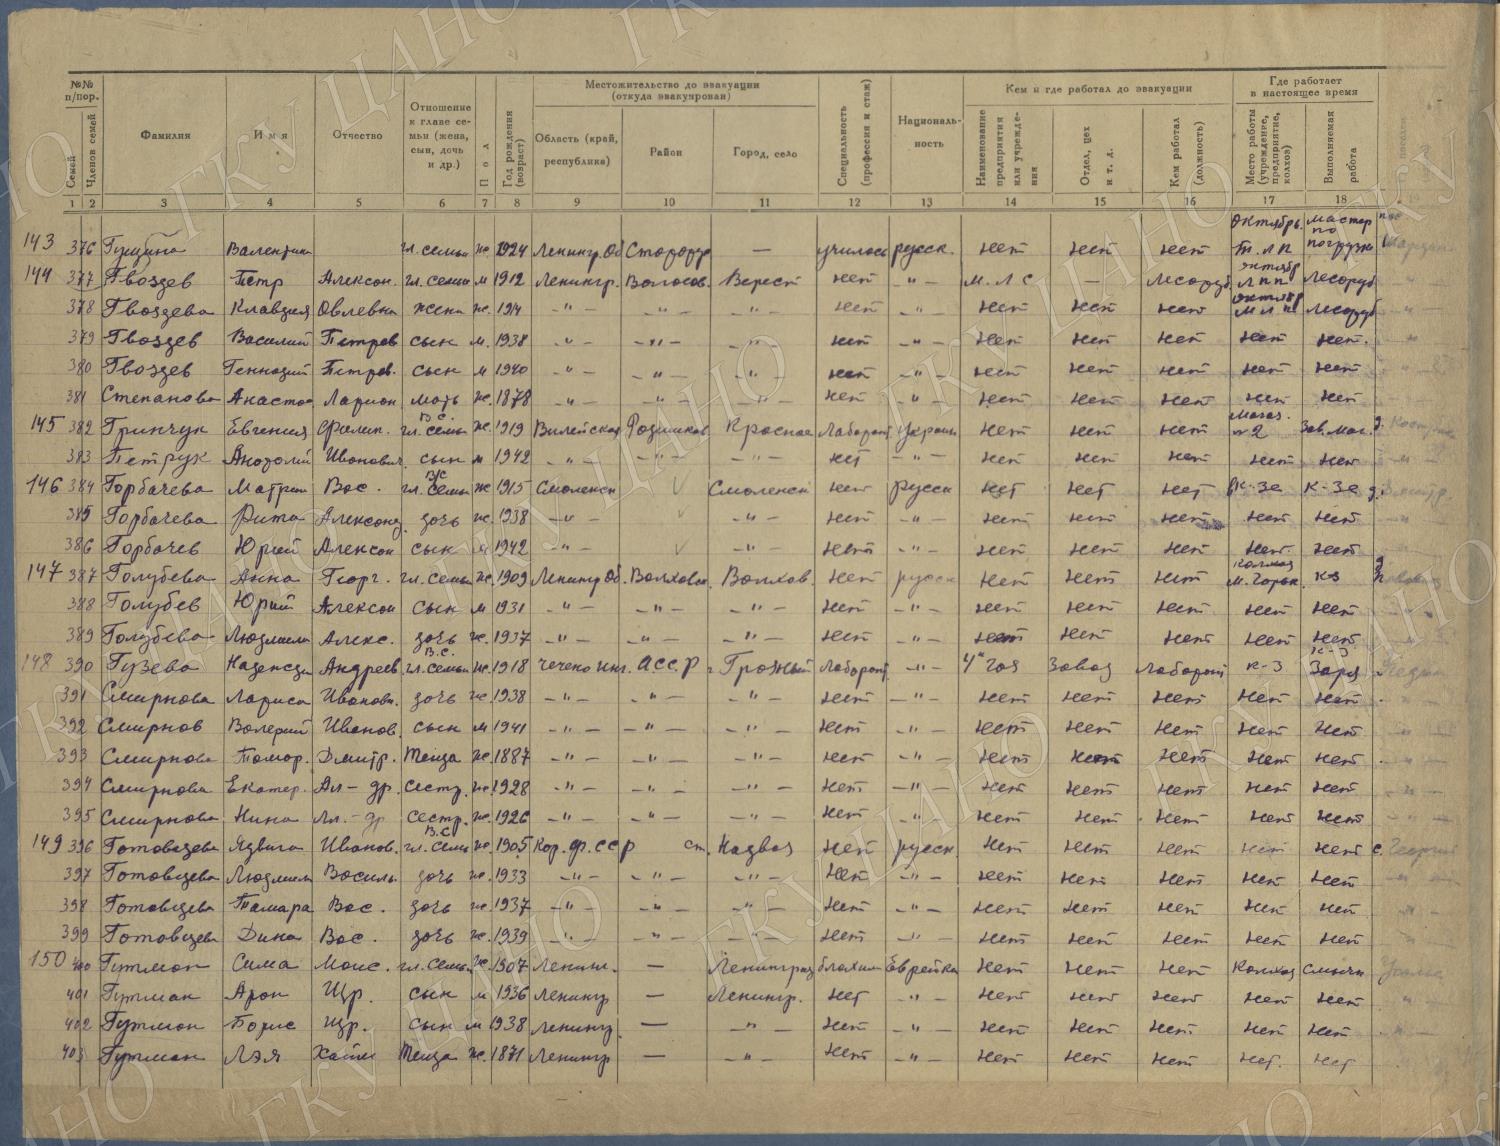 №№ п/пор.
Семей
Членов семей
Фамилия
Имя
Отчество
Отношение к главе семьи (жена, сын, дочь и др.)
Пол
Год рождения (возраст)
Местожительство до эвакуации (откуда эвакуирован)
Область (край, республика)
Район
Город, село
Специальность (профессия и стаж)
Националь-ность
Кем и где работал до эвакуации
Наименование предприятия или учреждения
Отдел, цех и т. д.
Кем работал (должность)
Где работает в настоящее время
Место работы (учреждение, предприятие, колхоз)
Выполняемая работа
1 2 3 4 5 6 7 8 9 10 11 12 13 14 15 16 17 18 19
143 376 Валентина гл. семьи ж 1924 Ленингр. Об — русск. нет нет нет Октябрь. Т.Л П мастер по погрузке
144 377 Гвоздев Петр Алексан. гл. семьи м 1912 Ленингр. Волосов. Верест нет -"- М. Л С — Лесоруб октябр ЛПП Лесоруб
378 Гвоздева Клавдия жена ж. -"- -"- -"- нет -"- нет нет нет октябр лесоруб
379 Гвоздев Василий Петров сын м. 1938 -"- -"- -"- нет -"- нет нет нет нет нет.
380 Гвоздев Геннадий Петров. сын м 1940 -"- -"- -"- нет -"- нет нет нет нет нет
381 Степанова Анастас Ларион мать ж. 1878 -"- -"- -"- нет -"- нет нет нет нет нет
145 382 Гринчук Евгения Филип. гл. семьи В.С. ж. 1919 Вилейская Красное Лаборант Украин нет нет нет Магаз. №2 Зав. маг.
383 Петрук Анатолий Иванович сын м 1942 -"- -"- -"- нет -"- нет нет нет нет нет
146 384 Горбачева Матрен Вас. гл. семьи В/С ж 1915 Смоленск Смоленск нет русск нет нет нет к-зе к-зе
385 Горбачева Рита Александ. дочь ж. 1938 -"- -"- нет -"- нет нет нет нет нет
386 Горбачев Юрий Алексан сын м 1942 -"- нет -"- нет нет нет нет. нет
147 387 Голубева Анна Георг. гл. семьи ж. 1909 Ленингр Об. Волховск. Волхов. нет русск нет нет нет колхоз М. Горьк. к-з
388 Голубев Юрий Алексан сын м 1931 -"- -"- -"- нет -"- нет нет нет нет нет
389 Голубева Людмила Алекс. дочь ж. 1937 -"- -"- -"- нет -"- нет нет нет нет нет
148 390 Гузева Надежда Андреев. гл. семьи В.С. ж. 1918 чечено инг. АССР г Грозный Лаборант -"- Завод Лаборант к-з к-з Заря
391 Смирнова Лариса Иванов. дочь ж 1938 -"- -"- -"- нет -"- нет нет нет нет нет
392 Смирнов Валерий Иванов. сын м 1941 -"- -"- -"- нет -"- нет нет нет нет нет
393 Смирнова Тамар. Дмитр. Теща ж. 1887 -"- -"- -"- нет -"- нет нет нет нет нет
394 Смирнова Екатер. Ал-др. Сестр. ж. 1928 -"- -"- -"- нет -"- нет нет нет нет нет
395 Смирнова Нина Ал.-др Сестр. ж. 1926 -"- -"- -"- нет -"- нет нет нет нет нет
149 396 Готовцева Ядвига Иванов. гл. семьи В.С ж. 1905 Кар. ф. ССР ст. Надвоя нет русск. нет нет нет нет нет
397 Готовцева Людмила Василь дочь ж. 1933 -"- -"- -"- нет -"- нет нет нет нет нет
398 Готовцева Тамара Вас. дочь ж. 1937 -"- -"- -"- нет -"- нет нет нет нет нет
399 Готовцева Дина Вас. дочь ж. 1939 -"- -"- -"- нет -"- нет нет нет нет нет
150 400 Гутман Сима Моис. гл. семьи ж. 1907 Ленинг. — Ленинград Еврейка нет нет нет Колхоз
401 Гутман Арон Щр. сын м 1936 Ленингр — Ленингр. нет -"- нет нет нет нет нет
402 Гутман Борис Щр. сын м 1938 Ленингр. — -"- нет -"- нет нет нет нет нет
403 Гутман Лэя Хаим Теща ж. 1871 Ленингр — -"- нет -"- нет нет нет нет. нет
ГКУ ЦАНО